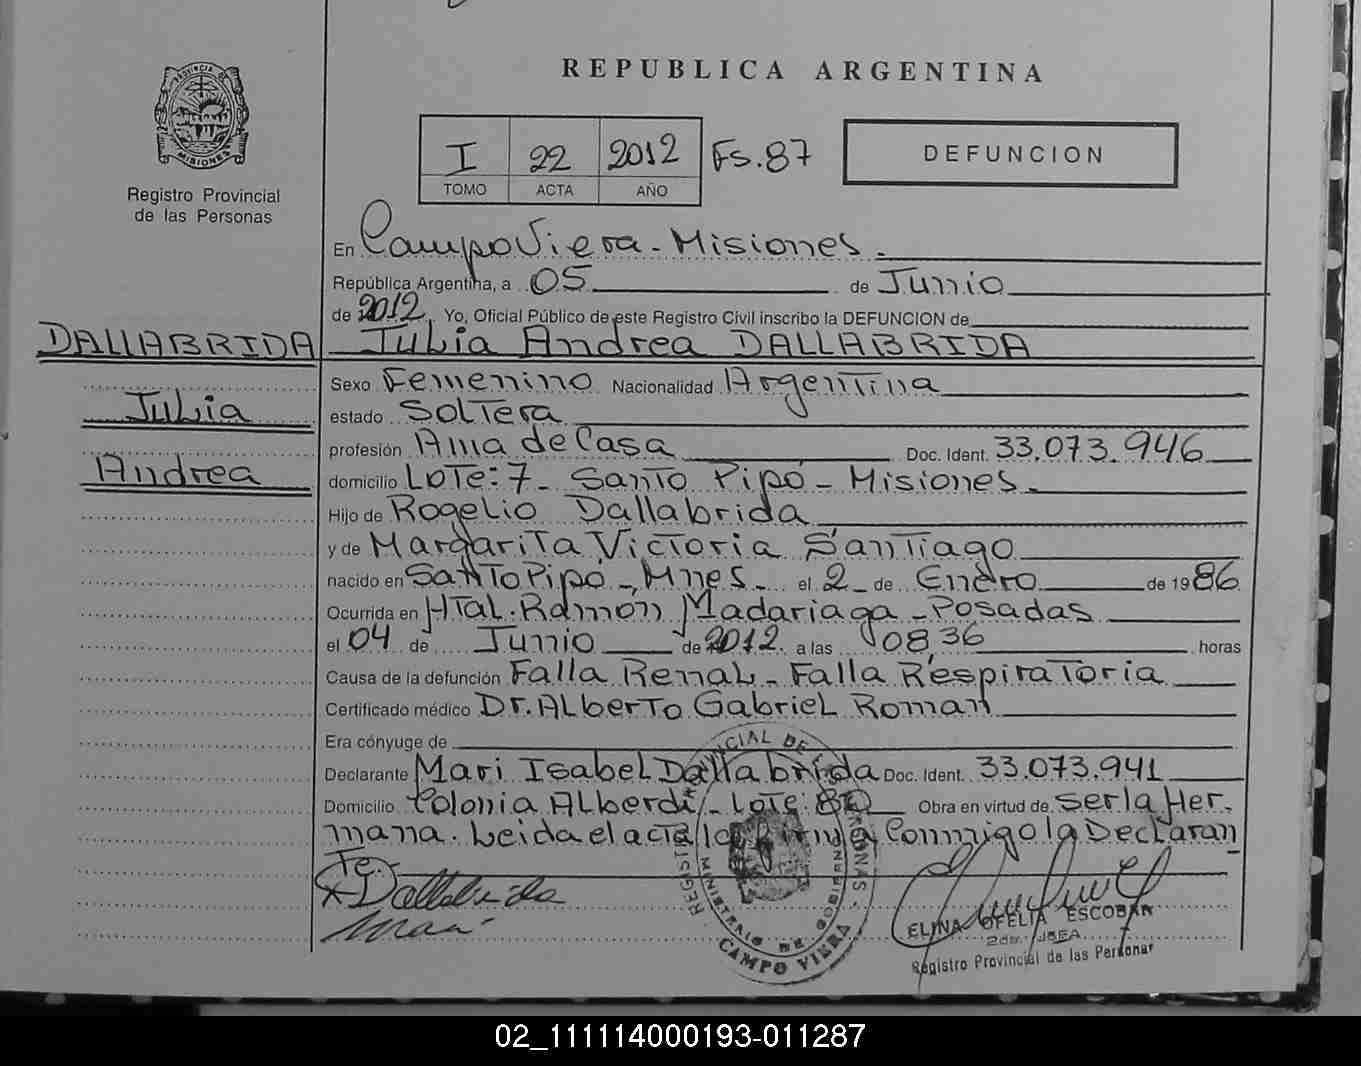 REPUBLICA ARGENTINA
PROVINCIA DE
MISIONES
Registro Provincial
de las Personas
I 22 2012 Fs. 87
TOMO ACTA AÑO
DEFUNCION
En Campo Viera - Misiones.
República Argentina, a 05 de Junio
de 2012. Yo, Oficial Público de este Registro Civil inscribo la DEFUNCION de
DALLABRIDA Julia Andrea DALLABRIDA
Sexo Femenino Nacionalidad Argentina
Julia estado Soltera
profesión Ama de Casa Doc. Ident. 33.073.946
Andrea domicilio Lote: 7 - Santo Pipó - Misiones.
Hijo de Rogelio Dallabrida
y de Margarita Victoria Santiago
nacido en Santo Pipó - Mnes - el 2 - de Enero de 1986
Ocurrida en Htal. Ramón Madariaga - Posadas
el 04 de Junio de 2012. a las 08,36 horas
Causa de la defunción Falla Renal - Falla Respiratoria
Certificado médico Dr. Alberto Gabriel Roman
Era cónyuge de
Declarante Mari Isabel Dallabrida Doc. Ident. 33.073.941
Domicilio Colonia Alberdi - Lote: 80 Obra en virtud de ser la Her-
mana. Leida el acta la firma conmigo la Declaran
te.
X Dallabrida
Mari
MINISTERIO DE GOBIERNO
CAMPO VIERA
ELINA OFELIA ESCOBAR
2da. JEFA
Registro Provincial de las Personas
02_111114000193-011287